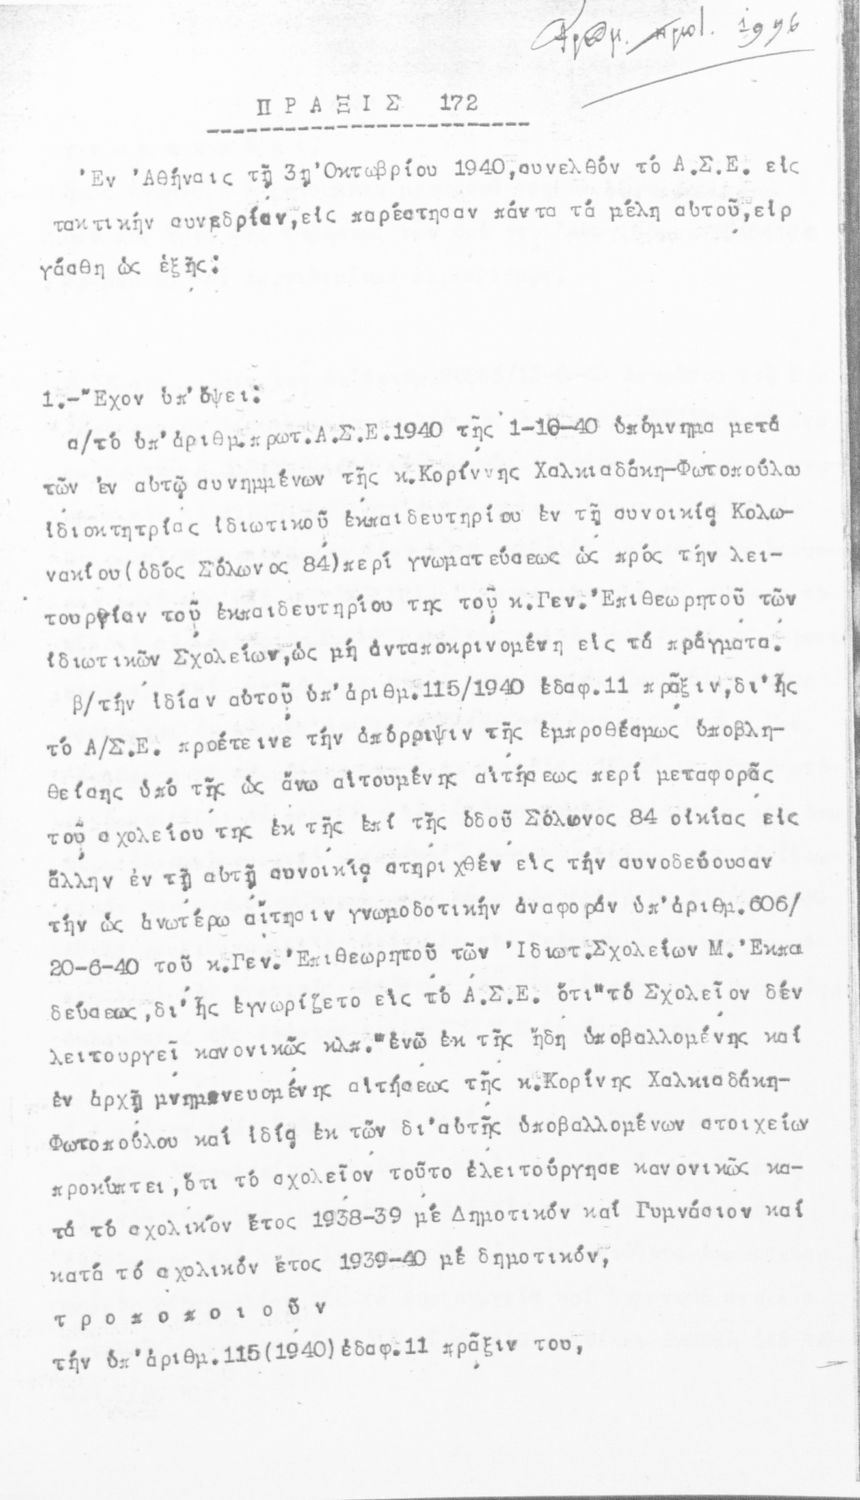 Αριθμ. πρωτ. 1996
ΠΡΑΞΙΣ 172
Ἐν Ἀθήναις τῇ 3ῃ Ὀκτωβρίου 1940,συνελθόν τό Α.Σ.Ε. εἰς
τακτικήν συνεδρίαν,εἰς παρέστησαν πάντα τά μέλη αὐτοῦ,εἰρ
γάσθη ὡς ἑξῆς:
1.-Ἔχον ὑπ'ὄψει:
α/τό ὑπ'ἀριθμ.πρωτ.Α.Σ.Ε.1940 τῆς 1-10-40 ὑπόμνημα μετά
τῶν ἐν αὐτῷ συνημμένων τῆς κ.Κορίννης Χαλκιαδάκη-Φωτοπούλου
ἰδιοκτητρίας ἰδιωτικοῦ ἐκπαιδευτηρίου ἐν τῇ συνοικίᾳ Κολω-
νακίου(ὁδός Σόλωνος 84)περί γνωματεύσεως ὡς πρός τήν λει-
τουργίαν τοῦ ἐκπαιδευτηρίου της τοῦ κ.Γεν.Ἐπιθεωρητοῦ τῶν
ἰδιωτικῶν Σχολείων,ὡς μή ἀνταποκρινομένη εἰς τά πράγματα.
β/τήν ἰδίαν αὐτοῦ ὑπ'ἀριθμ.115/1940 ἐδαφ.11 πρᾶξιν,δι'ἧς
τό Α/Σ.Ε. προέτεινε τήν ἀπόρριψιν τῆς ἐμπροθέσμως ὑποβλη-
θείσης ὑπό τῆς ὡς ἄνω αἰτουμένης αἰτήσεως περί μεταφορᾶς
τοῦ σχολείου της ἐκ τῆς ἐπί τῆς ὁδοῦ Σόλωνος 84 οἰκίας εἰς
ἄλλην ἐν τῇ αὐτῇ συνοικίᾳ στηριχθέν εἰς τήν συνοδεύουσαν
τήν ὡς ἀνωτέρω αἴτησιν γνωμοδοτικήν ἀναφοράν ὑπ'ἀριθμ.606/
20-6-40 τοῦ κ.Γεν.Ἐπιθεωρητοῦ τῶν Ἰδιωτ.Σχολείων Μ.Ἐκπα
δεύσεως,δι'ἧς ἐγνωρίζετο εἰς τό Α.Σ.Ε. ὅτι"τό Σχολεῖον δέν
λειτουργεῖ κανονικῶς κλπ."ἐνῷ ἐκ τῆς ἤδη ὑποβαλλομένης καί
ἐν ἀρχῇ μνημονευομένης αἰτήσεως τῆς κ.Κορίνης Χαλκιαδάκη-
Φωτοπούλου καί ἰδίᾳ ἐκ τῶν δι'αὐτῆς ὑποβαλλομένων στοιχείων
προκύπτει,ὅτι τό σχολεῖον τοῦτο ἐλειτούργησε κανονικῶς κα-
τά τό σχολικόν ἔτος 1938-39 μέ Δημοτικόν καί Γυμνάσιον καί
κατά τό σχολικόν ἔτος 1939-40 μέ δημοτικόν,
τροποποιοῦν
τήν ὑπ'ἀριθμ.115(1940)ἐδαφ.11 πρᾶξιν του,